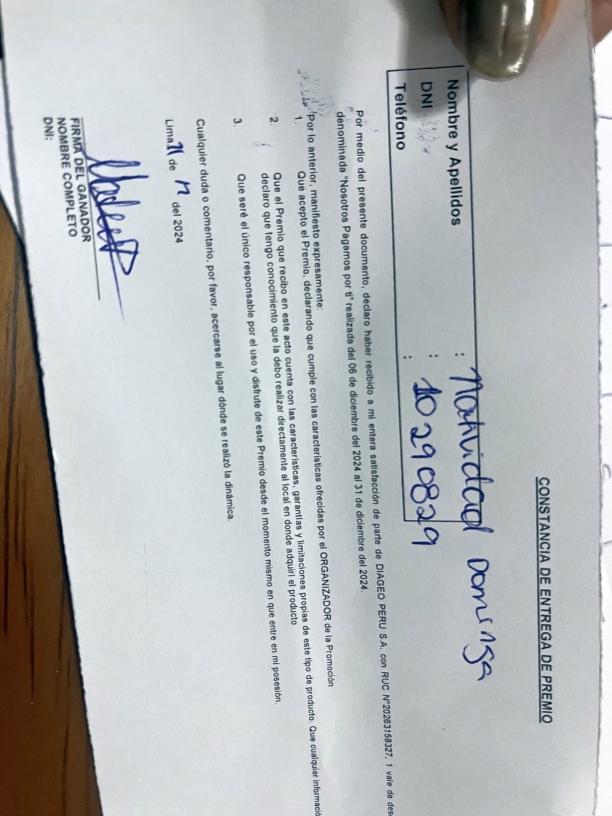 CONSTANCIA DE ENTREGA DE PREMIO
Nombre y Apellidos : Natividad Dominga
DNI : 10290829
Teléfono :
Por medio del presente documento, declaro haber recibido a mi entera satisfacción de parte de DIAGEO PERU S.A. con RUC N°20263158327, 1 vale de des
denominada "Nosotros Pagamos por ti" realizada del 06 de diciembre del 2024 al 31 de diciembre del 2024.
Por lo anterior, manifiesto expresamente:
1. Que acepto el Premio, declarando que cumple con las características ofrecidas por el ORGANIZADOR de la Promoción
2. Que el Premio que recibo en este acto cuenta con las características, garantías y limitaciones propias de este tipo de producto. Que cualquier informació
declaro que tengo conocimiento que la debo realizar directamente al local en donde adquirí el producto
3. Que seré el único responsable por el uso y disfrute de este Premio desde el momento mismo en que entre en mi posesión.
Cualquier duda o comentario, por favor, acercarse al lugar dónde se realizó la dinámica.
Lima, de 12 del 2024
FIRMA DEL GANADOR
NOMBRE COMPLETO
DNI: